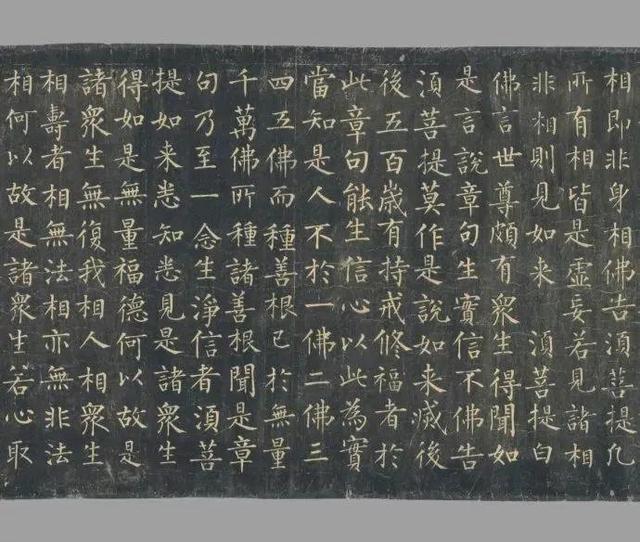 相即非身相佛告須菩提凡
所有相皆是虛妄若見諸相
非相則見如来 須菩提白
佛言世尊頗有衆生得聞如
是言說章句生實信不佛告
須菩提莫作是說如来滅後
後五百歲有持戒修福者於
此章句能生信心以此為實
當知是人不於一佛二佛三
四五佛而種善根已於無量
千萬佛所種諸善根聞是章
句乃至一念生淨信者須菩
提如来悉知悉見是諸衆生
得如是無量福德何以故是
諸衆生無復我相人相衆生
相壽者相無法相亦無非法
相何以故是諸衆生若心取